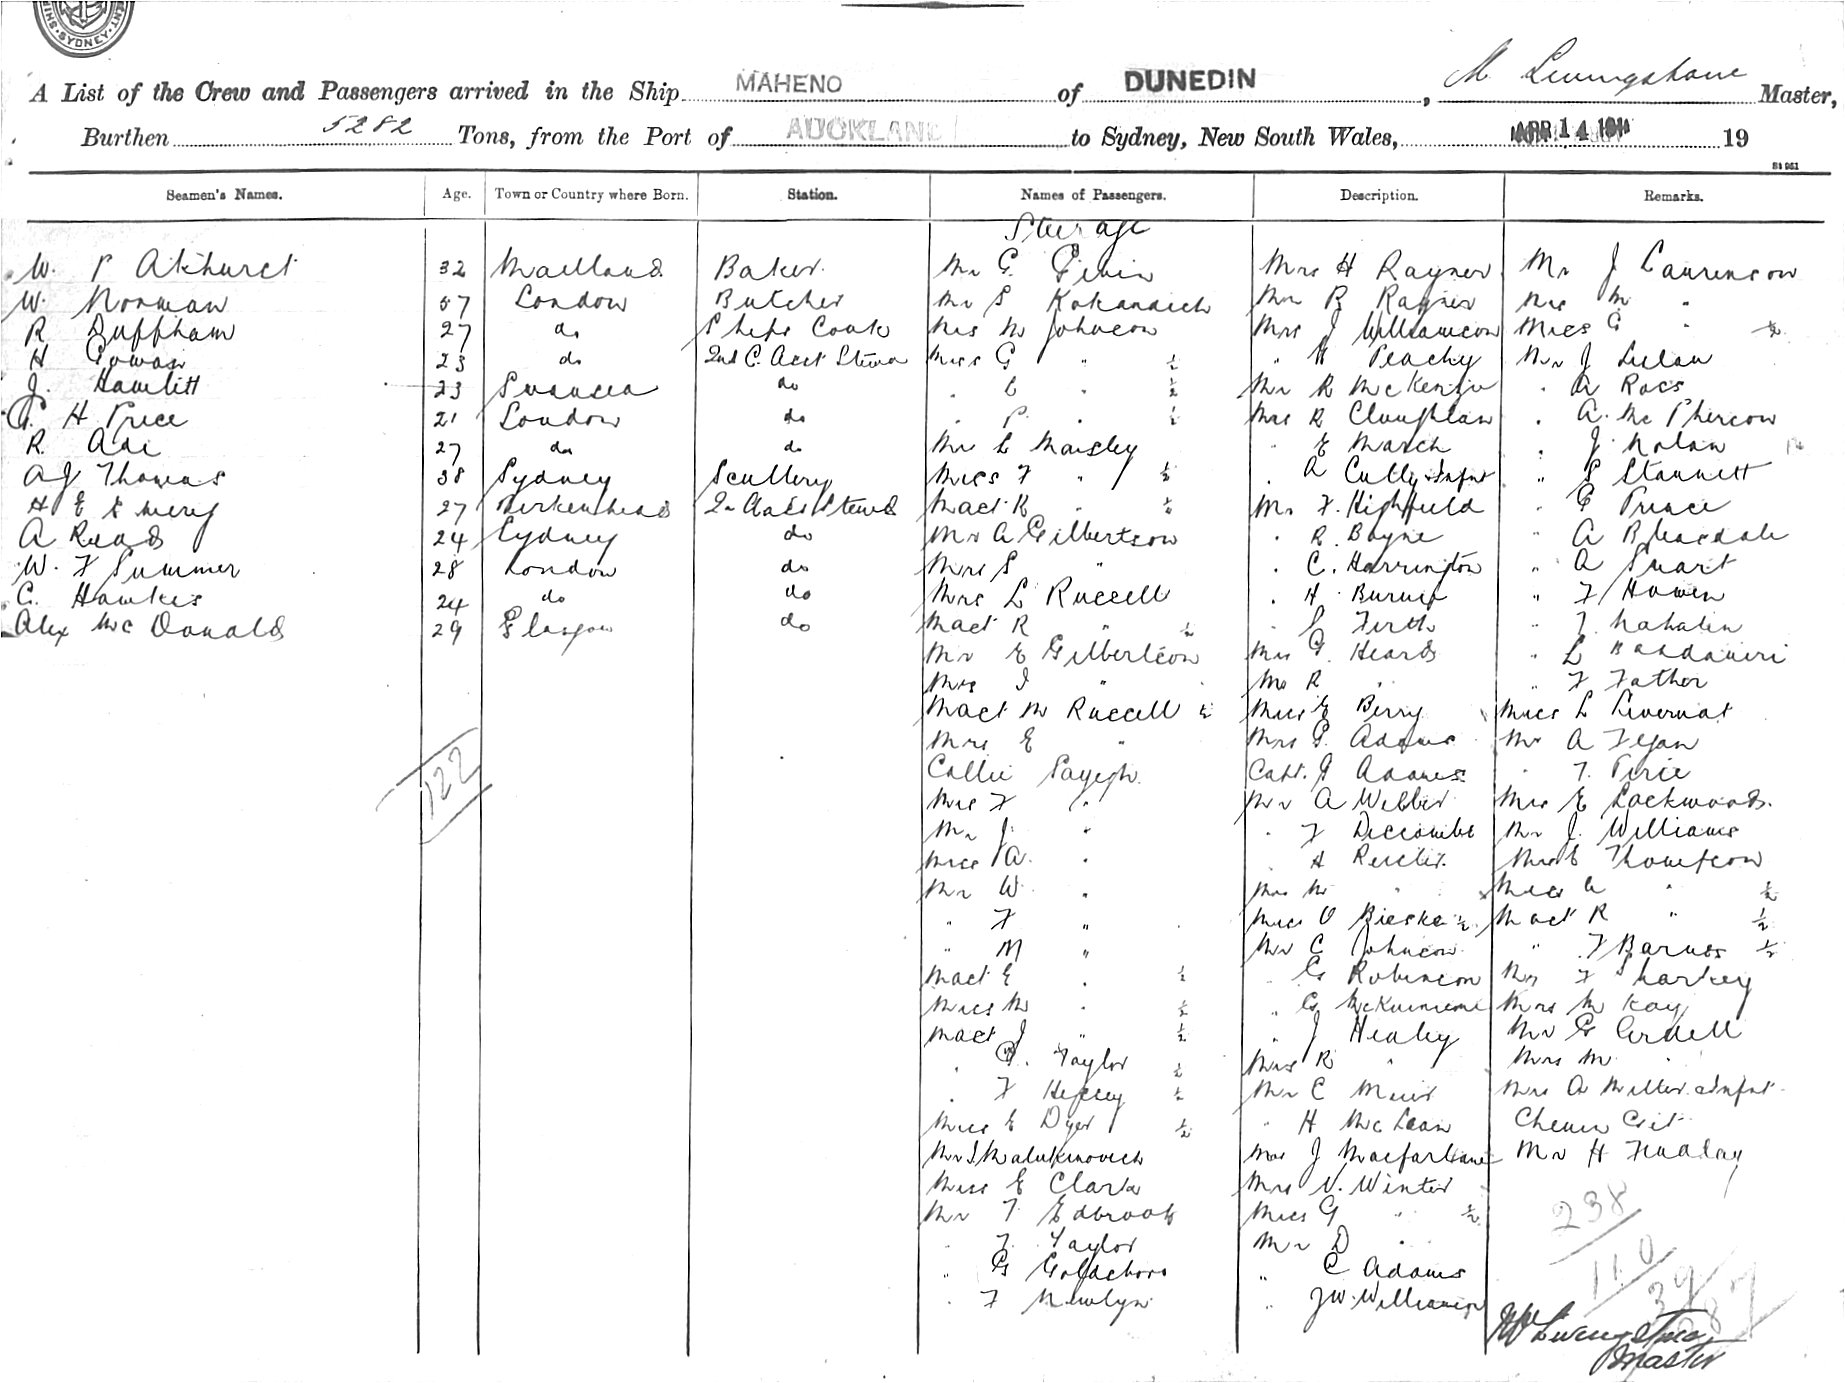 SYDNEY
A List of the Crew and Passengers arrived in the Ship MAHENO of DUNEDIN, M Livingstone Master,
Burthen 5282 Tons, from the Port of AUCKLAND to Sydney, New South Wales, APR 14 1911 19
Seamen's Names. Age. Town or Country where Born. Station. Names of Passengers. Description. Remarks.
Steerage
W. P Akhurst 32 Maitland Baker Mr G. Mrs H Rayner Mr J Laurenson
W. Norman 37 London Butcher Mr S Mr B Rayner Mrs M "
R Duffham 27 do Ships Cook Mrs M Johnson Mrs J Williamson Miss G " ½
H Gowan 23 do 2nd C. Asst Stewd Miss G " ½ " H Peachy Mr J
J. Hamlett 23 Swansea do " E " ½ Mr R McKenzie " A Ross
H Price 21 London do " P. " ½ Mrs R Claughlan " A. McPherson
R. Ade 27 do do Mr E Maisley " E March " J. Nolan
A J Thomas 38 Sydney Scullery Miss F " ½ " A Cully & Infnt " S Stannett
H E Emery 27 Birkenhead 2n Class Stewd Mast R " ½ Mr F. Highfield " E Prince
A Read 24 Sydney do Mr A Gilbertson " R. Bayne " A Bleasdale
W. F Summer 28 London do Mrs S " " C. Harrington " A Stuart
C. Hawkes 24 do do Mrs L Russell " H Burnep " F Howen
Alex McDonald 29 Glasgow do Mast R " ½ " S Firth " T.
Mr E Gilbertson Mrs G. Heard " L
Mrs J " Mr R " " F Father
Mast M Russell ½ Miss E Berry Miss L Livernat
Mrs E " Mrs G. Adams Mr A
122
Callie Sayegh Capt. G Adams " T. Pirie
Mrs F " Mr A Webber Mrs E Lockwood.
Mr J. " " F Discombe Mr J. Williams
Miss A. " " A Mrs E Thompson
Mr W " Mrs M " Miss A " ½
" F " Miss O Bieske ½ Mast R " ½
" M " Mr C Johnson " F Barnes ½
Mast E " ½ " G Robinson Mr F Sharkey
Miss M " ½ " G Mrs M Kay
Mast J " ½ " J Healey Mr G Cordell
" G. Taylor ½ Mrs R " Mrs M "
" F ½ Mr C Muir Mrs A Miller & Infnt
Miss E Dyer ½ " H McLean
Mr J Malukinovich Mrs J Macfarlane Mr H Findlay
Miss E Clark Mrs N. Winter
Mr T Edbrook Miss G " ½
" T. Taylor Mr D "
" G Goldsboro " C Adams
" F Newlyn " J W. Williamson
238
110
39
387
M Livingstone
Master